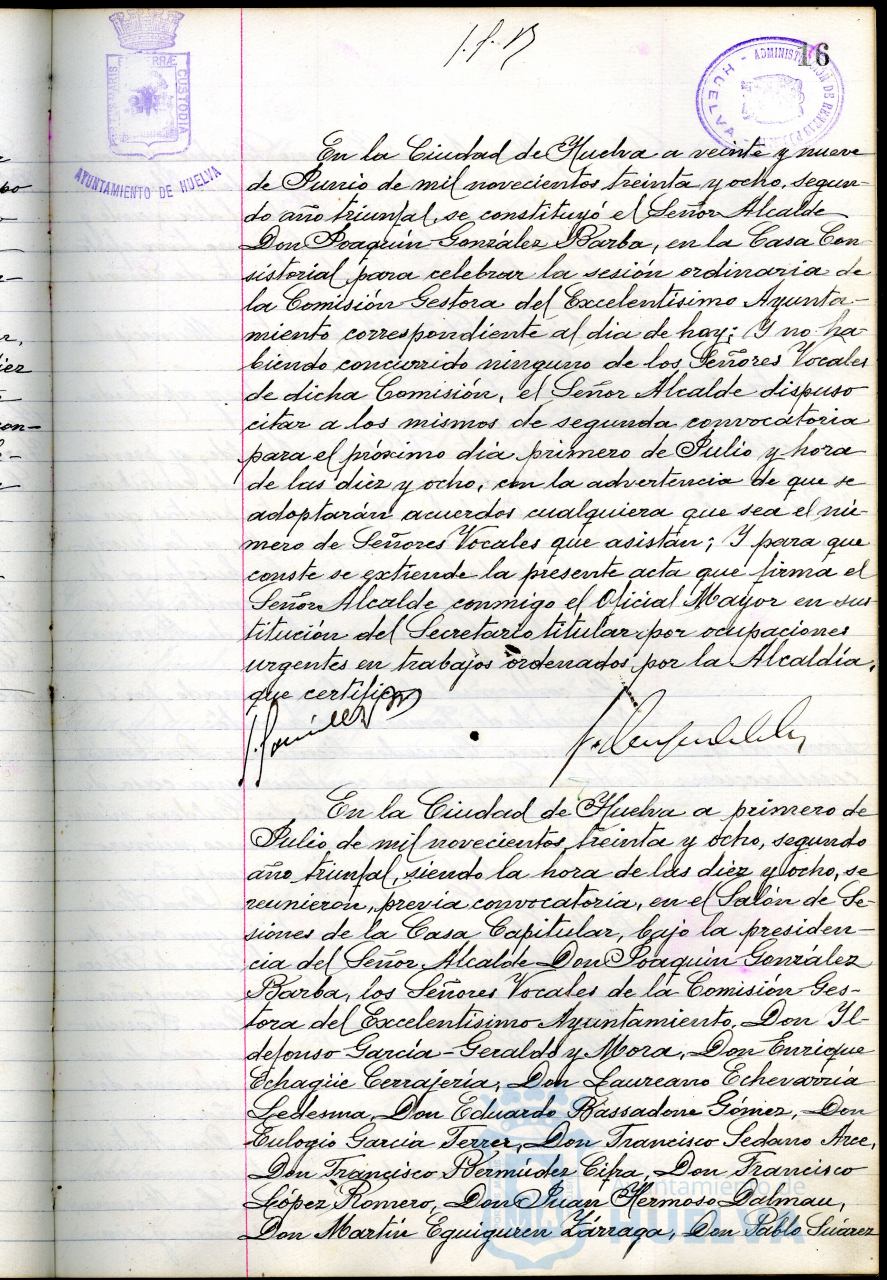 16
PORTUS MARIS ET TERRÆ CUSTODIA
AYUNTAMIENTO DE HUELVA
ADMINISTRACIÓN DE RENTAS PÚBLICAS - HUELVA -
En la Ciudad de Huelva a veinte y nueve
de Junio de mil novecientos treinta y ocho, segun-
do año triunfal, se constituyó el Señor Alcalde
Don Joaquín González Barba, en la Casa Con-
sistorial para celebrar la sesión ordinaria de
la Comisión Gestora del Excelentísimo Ayunta-
miento correspondiente al dia de hoy; Y no ha-
biendo concurrido ninguno de los Señores Vocales
de dicha Comisión, el Señor Alcalde dispuso
citar a los mismos de segunda convocatoria
para el próximo dia primero de Julio y hora
de las diez y ocho, con la advertencia de que se
adoptarán acuerdos cualquiera que sea el nú-
mero de Señores Vocales que asistan; Y para que
conste se extiende la presente acta que firma el
Señor Alcalde conmigo el Oficial Mayor en sus-
titución del Secretario titular por ocupaciones
urgentes en trabajos ordenados por la Alcaldía,
que certifico
En la Ciudad de Huelva a primero de
Julio de mil novecientos treinta y ocho, segundo
año triunfal, siendo la hora de las diez y ocho, se
reunieron, previa convocatoria, en el Salón de Se-
siones de la Casa Capitular, bajo la presiden-
cia del Señor Alcalde Don Joaquín González
Barba, los Señores Vocales de la Comisión Ges-
tora del Excelentísimo Ayuntamiento, Don Il-
defonso García-Geraldo y Mora, Don Enrique
Echagüe Cerrajería, Don Laureano Echevarría
Ledesma, Don Eduardo Bassadone Gómez, Don
Eulogio García Ferrer, Don Francisco Sedano Arce,
Don Francisco Bermúdez Cifra, Don Francisco
López Romero, Don Juan Hermoso Dalmau,
Don Martín Eguiguren Zárraga, Don Pablo Suárez
Ayuntamiento de
HUELVA